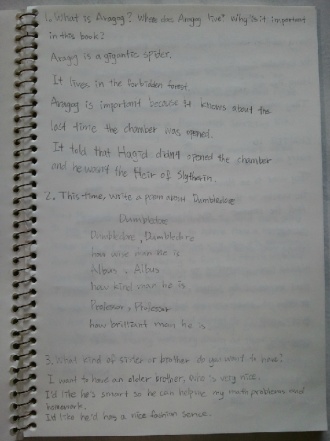 1. What is Aragog? Where does Aragog live? Why is it important
in this book?
Aragog is a gigantic spider.
It lives in the forbidden forest.
Aragog is important because it knows about the
last time the chamber was opened.
It told that Hagrid didn't opened the chamber
and he wasn't the Heir of Slytherin.
2. This time, write a poem about Dumbledore
Dumbledore
Dumbledore, Dumbledore
how wise man he is
Albus, Albus
how kind man he is
Professor, Professor
how brilliant man he is
3. What kind of sister or brother do you want to have?
I want to have an older brother, who is very nice.
I'd like he's smart so he can help me my math problems and
homework.
I'd like he'd has a nice fashion sense.